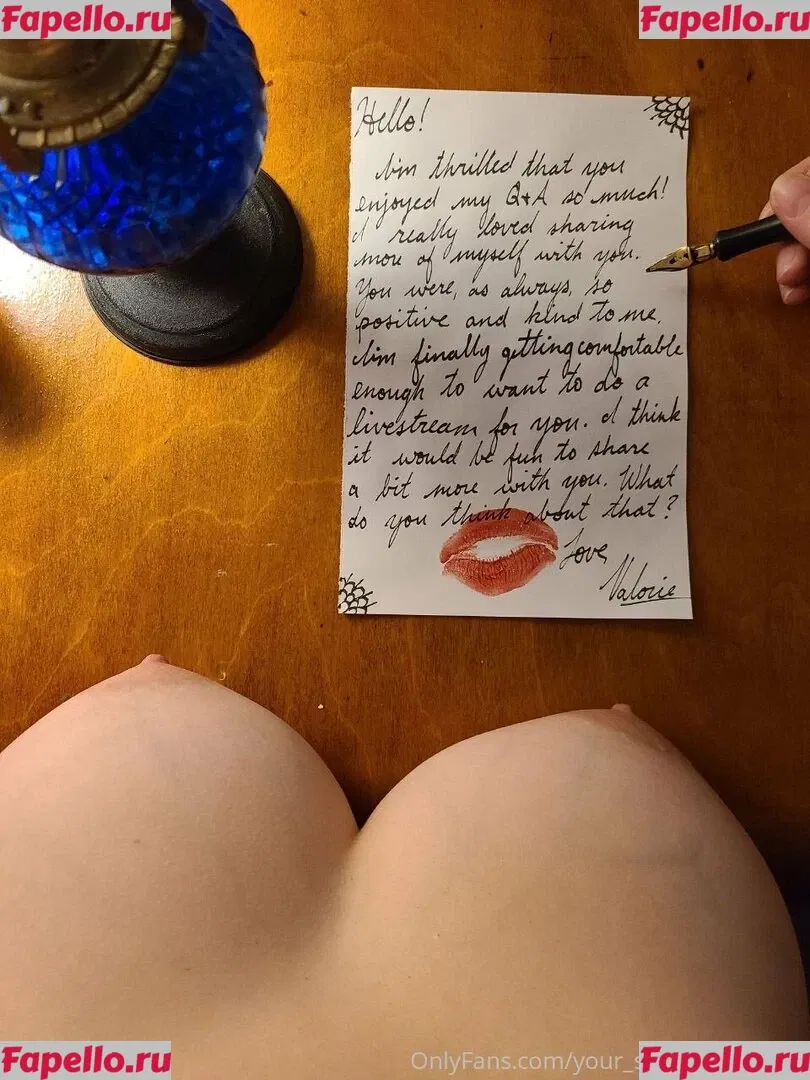 Fapello.ru
Fapello.ru
Hello!
I'm thrilled that you
enjoyed my Q+A so much!
I really loved sharing
more of myself with you.
You were, as always, so
positive and kind to me.
I'm finally getting comfortable
enough to want to do a
livestream for you. I think
it would be fun to share
a bit more with you. What
do you think about that?
Love,
Valorie
OnlyFans.com/your_s
Fapello.ru
Fapello.ru